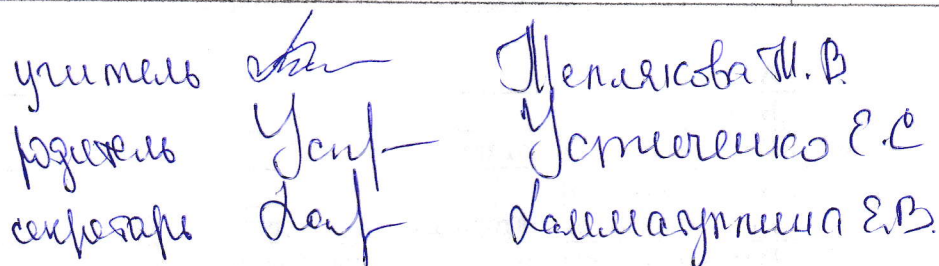 учитель Теплякова Т. В.
родитель Устиченко Е.С
секретарь Хамматуллина Е.В.